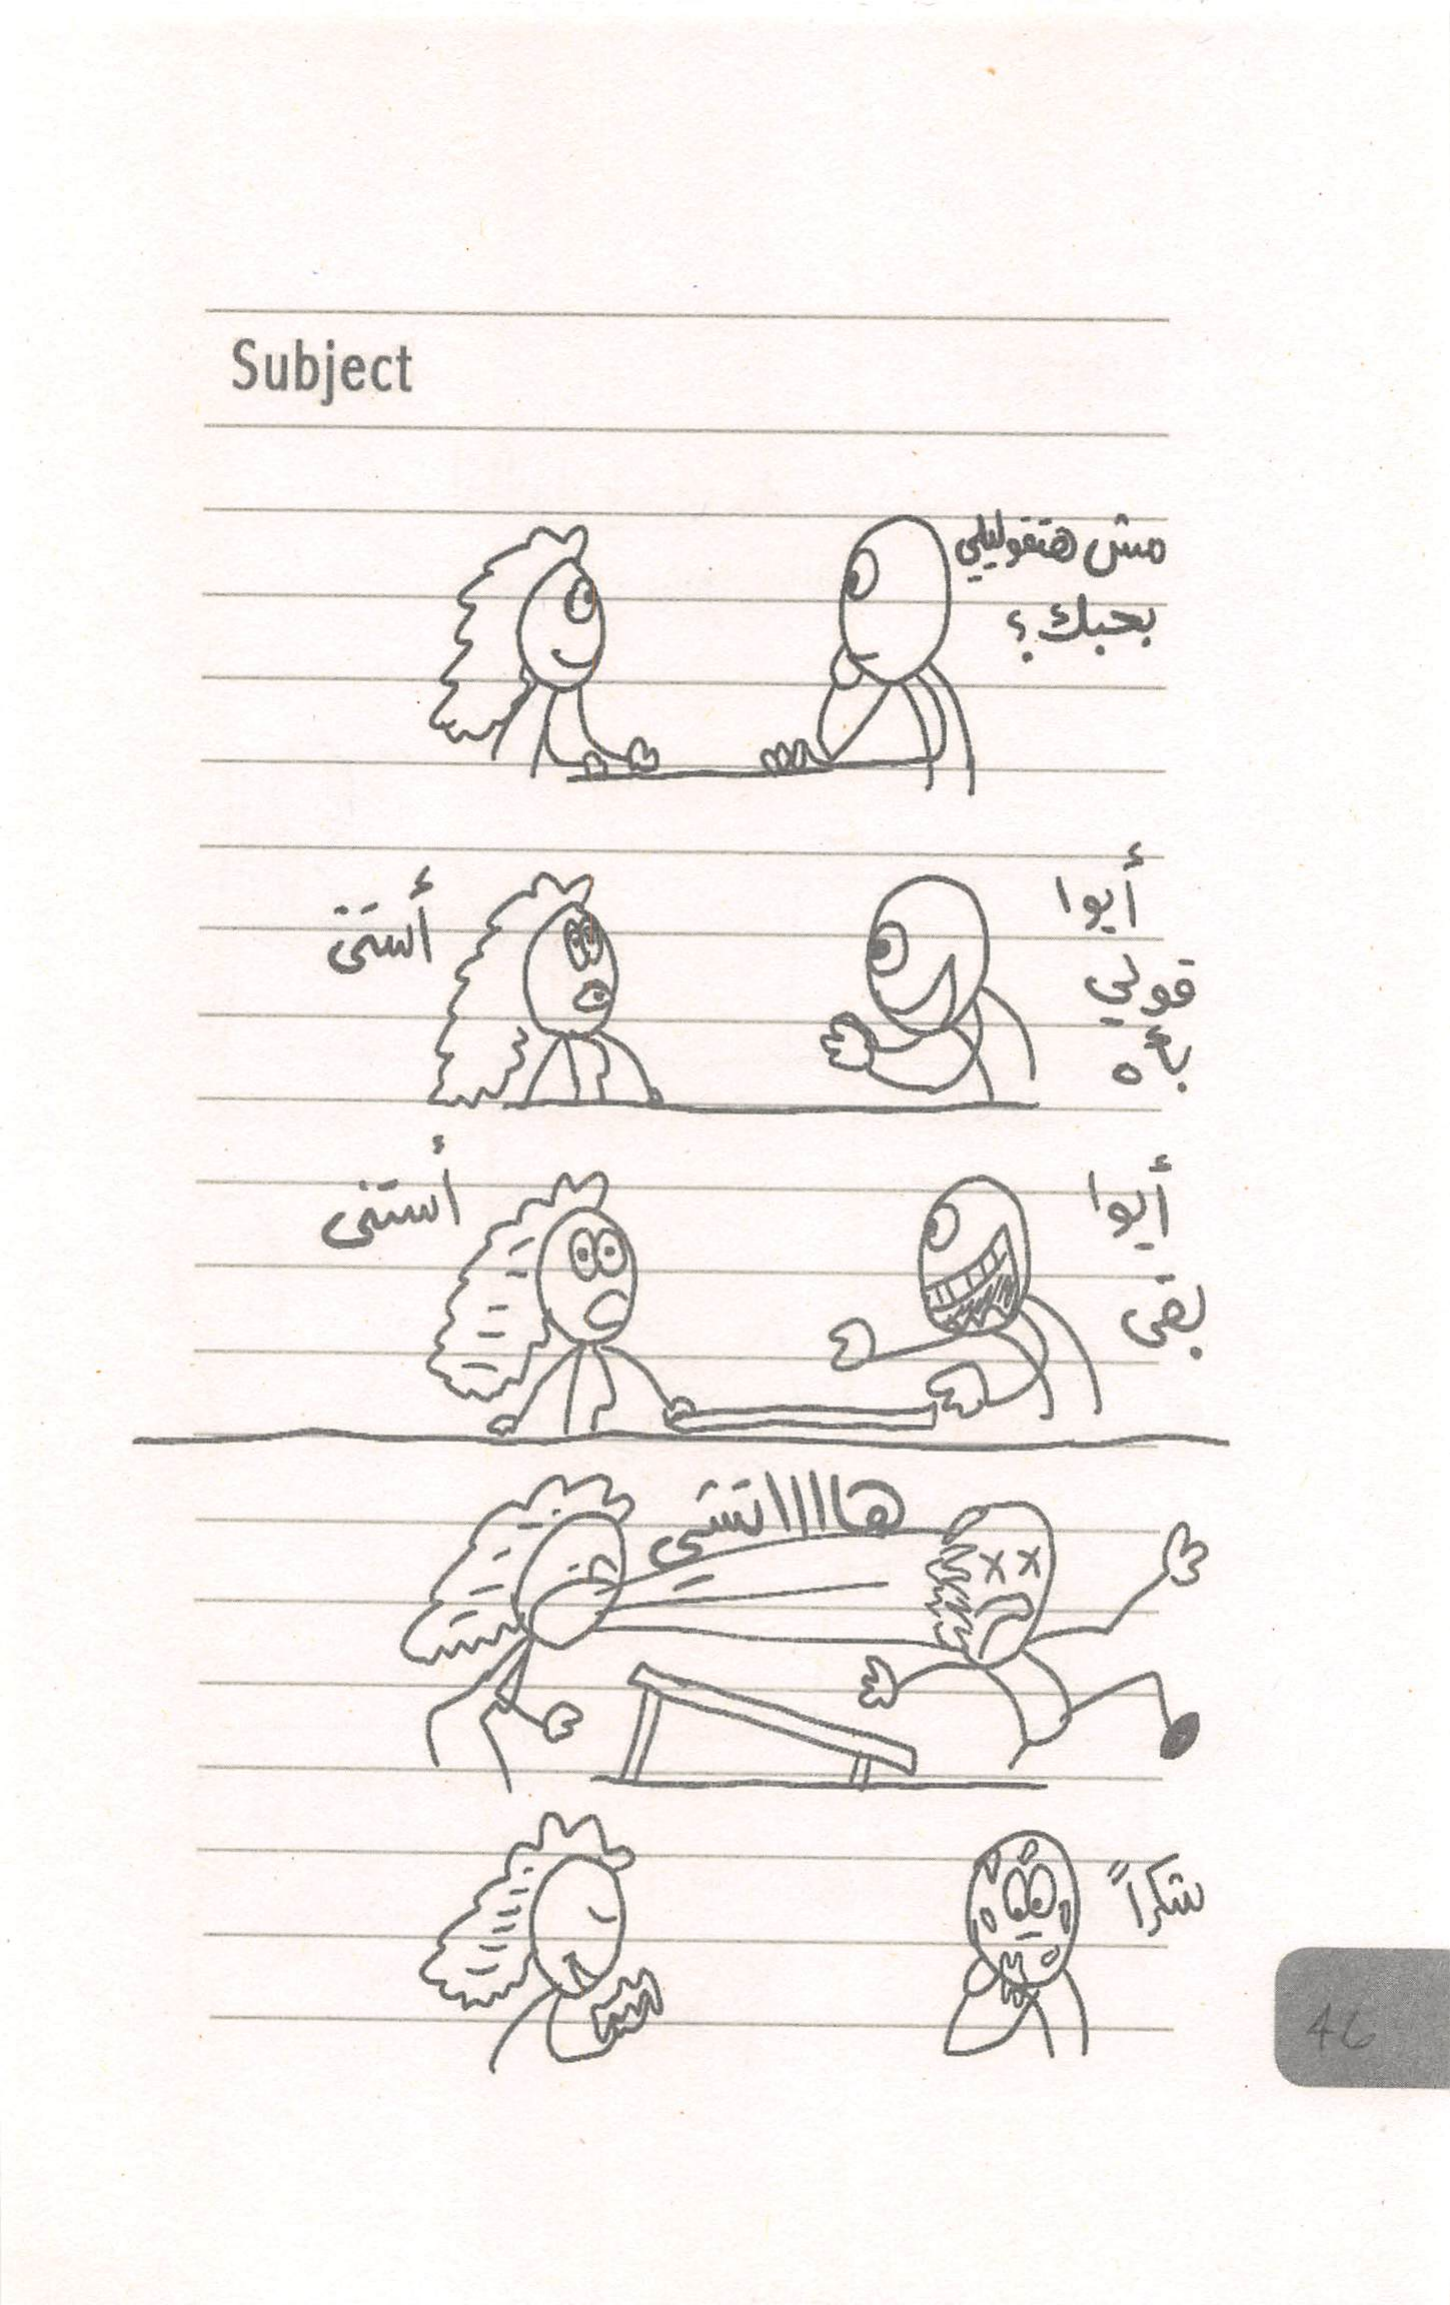 Subject
مش هتقوليلي
بحبك؟
أيوا
قولي
بأه
أستنى
أيوا
بقى
أستنى
هااااتشى
شكراً
46